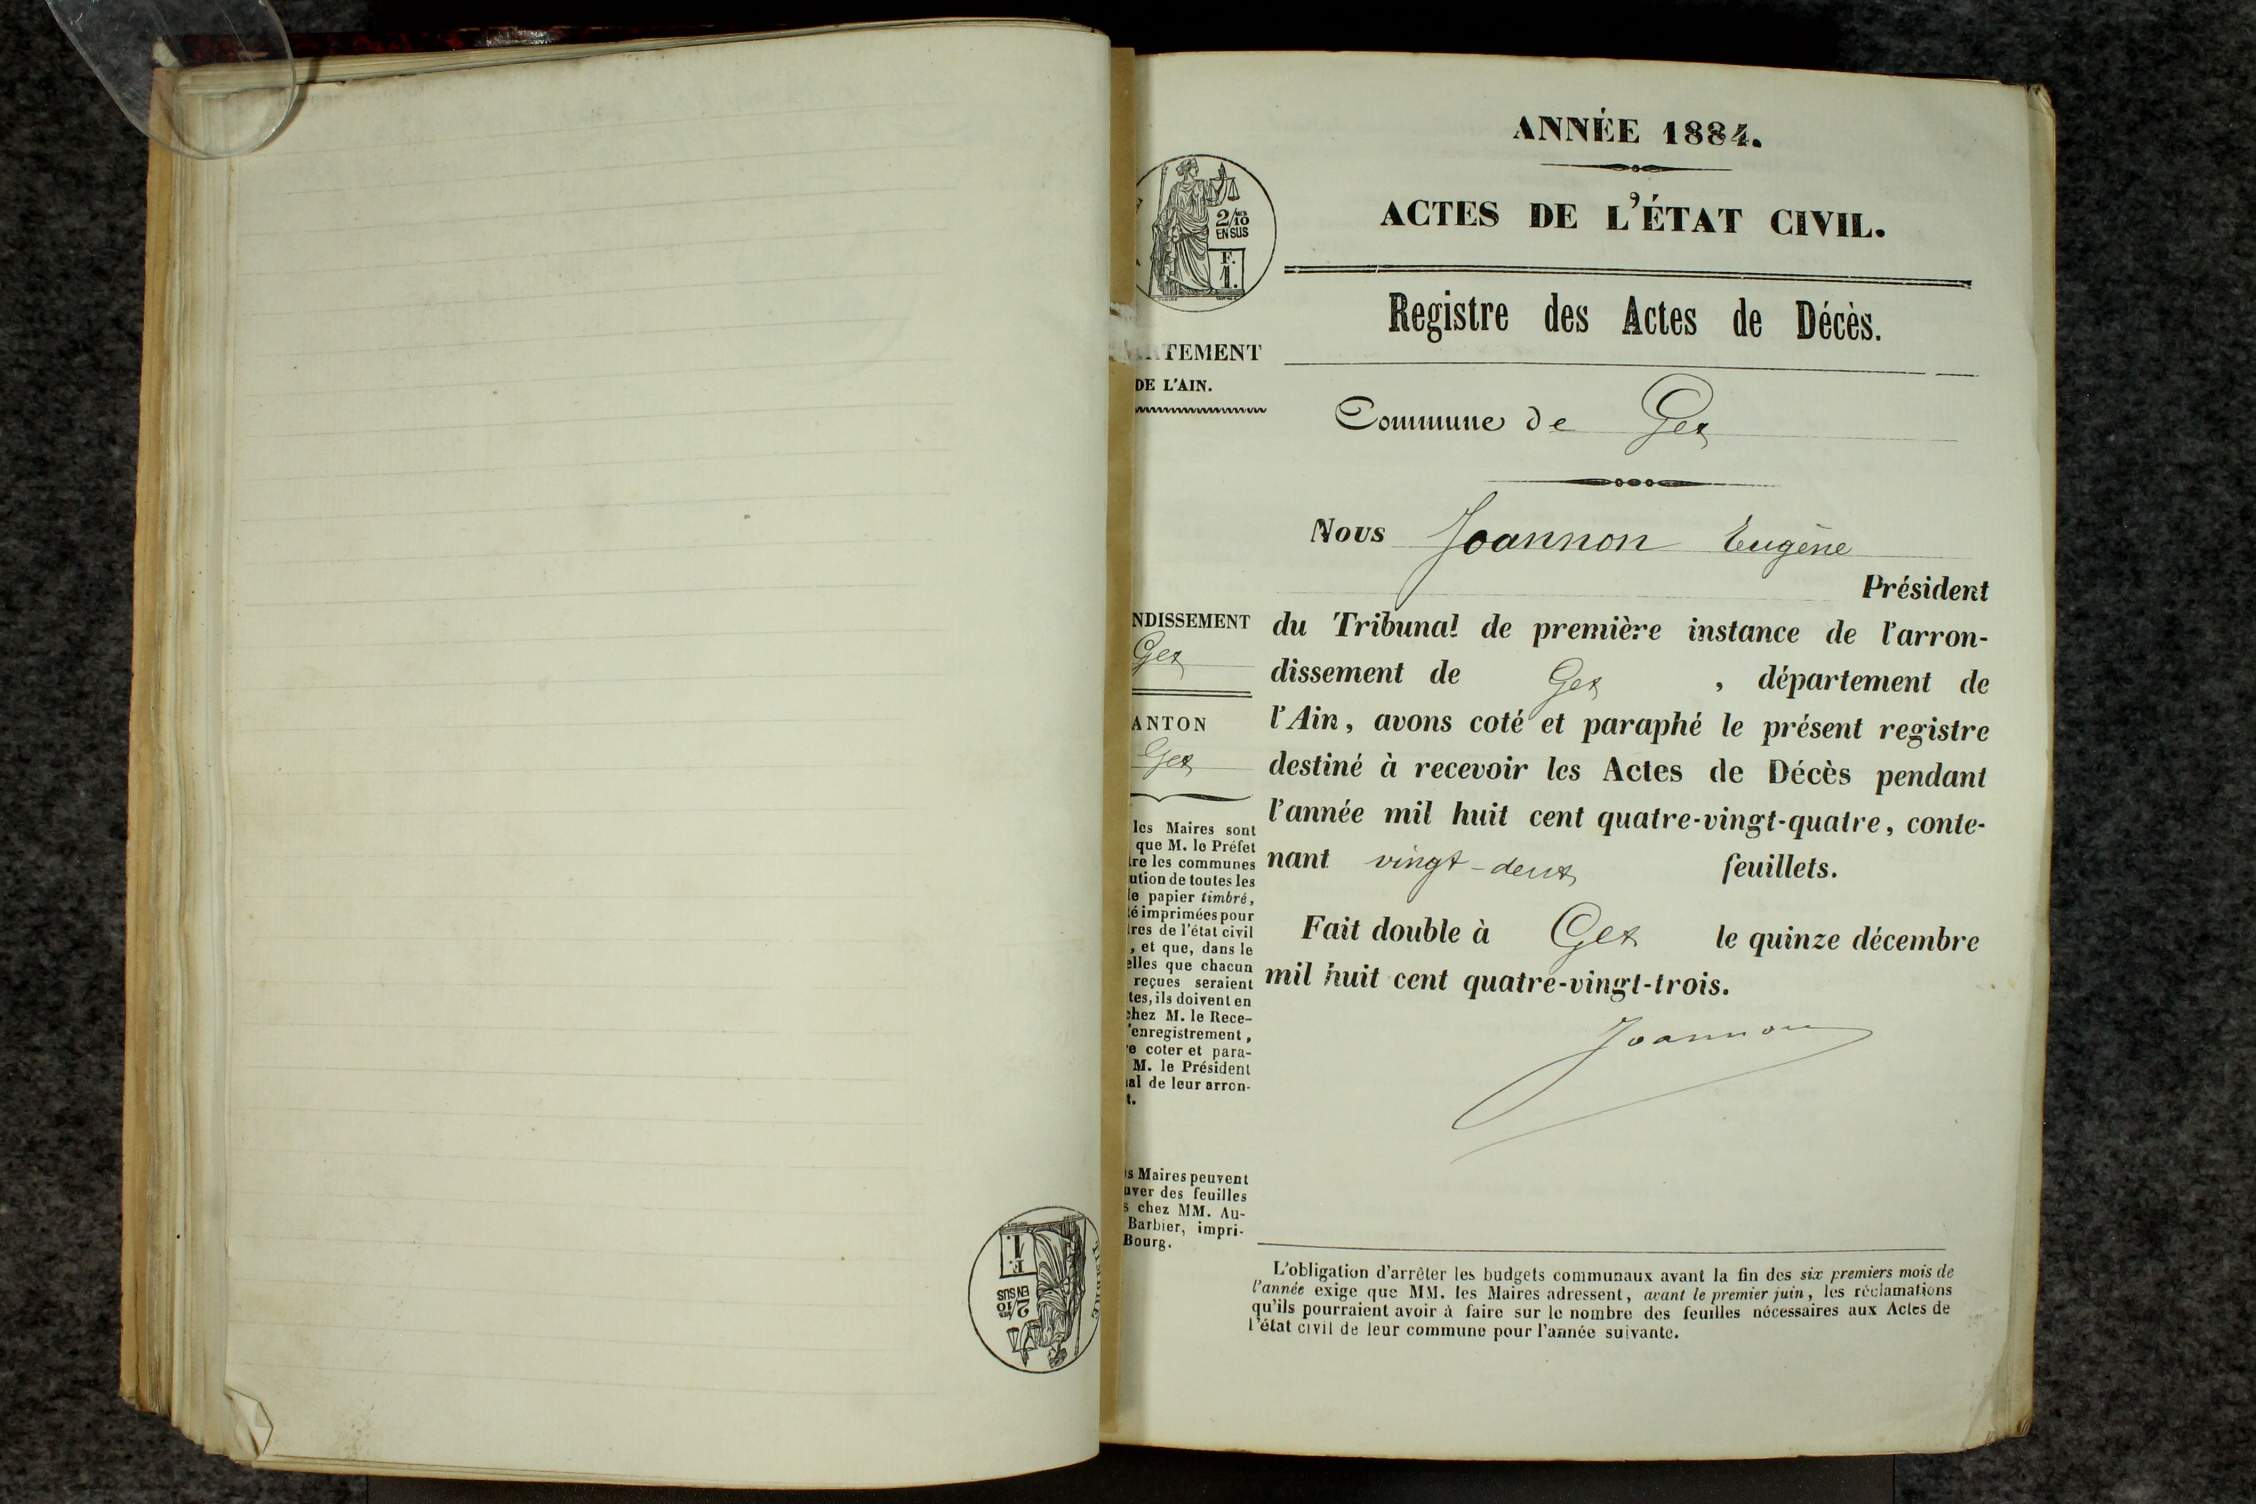 ANNÉE 1884.
ACTES DE L'ÉTAT CIVIL.
2/10
EN SUS
F.
1.
Registre des Actes de Décès.
TEMENT
DE L'AIN.
Commune de Gex
Nous Joannon Eugène
Président
du Tribunal de première instance de l'arron-
dissement de Gex , département de
l'Ain, avons coté et paraphé le présent registre
destiné à recevoir les Actes de Décès pendant
l'année mil huit cent quatre-vingt-quatre, conte-
nant vingt-deux feuillets.
Fait double à Gex le quinze décembre
mil huit cent quatre-vingt-trois.
Joannon
NDISSEMENT
Gex
ANTON
Gex
les Maires sont
que M. le Préfet
re les communes
ution de toutes les
e papier timbré,
é imprimées pour
res de l'état civil
, et que, dans le
elles que chacun
reçues seraient
tes, ils doivent en
chez M. le Rece-
'enregistrement,
e coter et para-
M. le Président
al de leur arron-
t.
s Maires peuvent
uver des feuilles
s chez MM. Au-
Barbier, impri-
Bourg.
L'obligation d'arrêter les budgets communaux avant la fin des six premiers mois de
l'année exige que MM. les Maires adressent, avant le premier juin, les réclamations
qu'ils pourraient avoir à faire sur le nombre des feuilles nécessaires aux Actes de
l'état civil de leur commune pour l'année suivante.
F.
1.
2/10
EN SUS